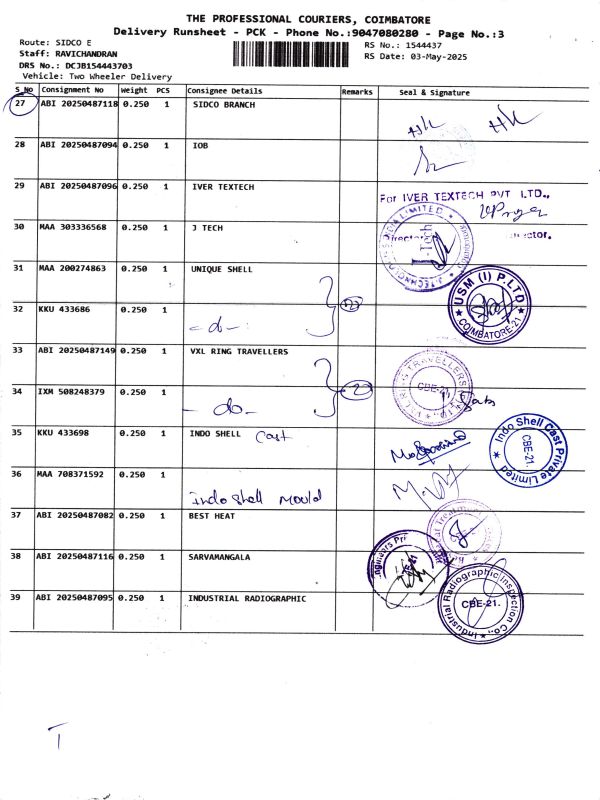 THE PROFESSIONAL COURIERS, COIMBATORE
Delivery Runsheet - PCK - Phone No.:9047080280 - Page No.:3
Route: SIDCO E
RS No.: 1544437
Staff: RAVICHANDRAN
RS Date: 03-May-2025
DRS No.: DCJB154443703
Vehicle: Two Wheeler Delivery
S_No Consignment No Weight PCS Consignee Details Remarks Seal & Signature
27 ABI 20250487118 0.250 1 SIDCO BRANCH
28 ABI 20250487094 0.250 1 IOB
29 ABI 20250487096 0.250 1 IVER TEXTECH
For IVER TEXTECH PVT LTD.,
Director.
30 MAA 303336568 0.250 1 J TECH
J Tech
31 MAA 200274863 0.250 1 UNIQUE SHELL
USM (I) P.LTD
COIMBATORE-21
32 KKU 433686 0.250 1
-do-
33 ABI 20250487149 0.250 1 VXL RING TRAVELLERS
CBE-21
34 IXM 508248379 0.250 1
- do -
35 KKU 433698 0.250 1 INDO SHELL Cast
Indo Shell Cast Private Limited
CBE-21.
36 MAA 708371592 0.250 1
Indo Shell Mould
37 ABI 20250487082 0.250 1 BEST HEAT
38 ABI 20250487116 0.250 1 SARVAMANGALA
39 ABI 20250487095 0.250 1 INDUSTRIAL RADIOGRAPHIC
Industrial Radiographic Inspection Co.,
CBE-21.